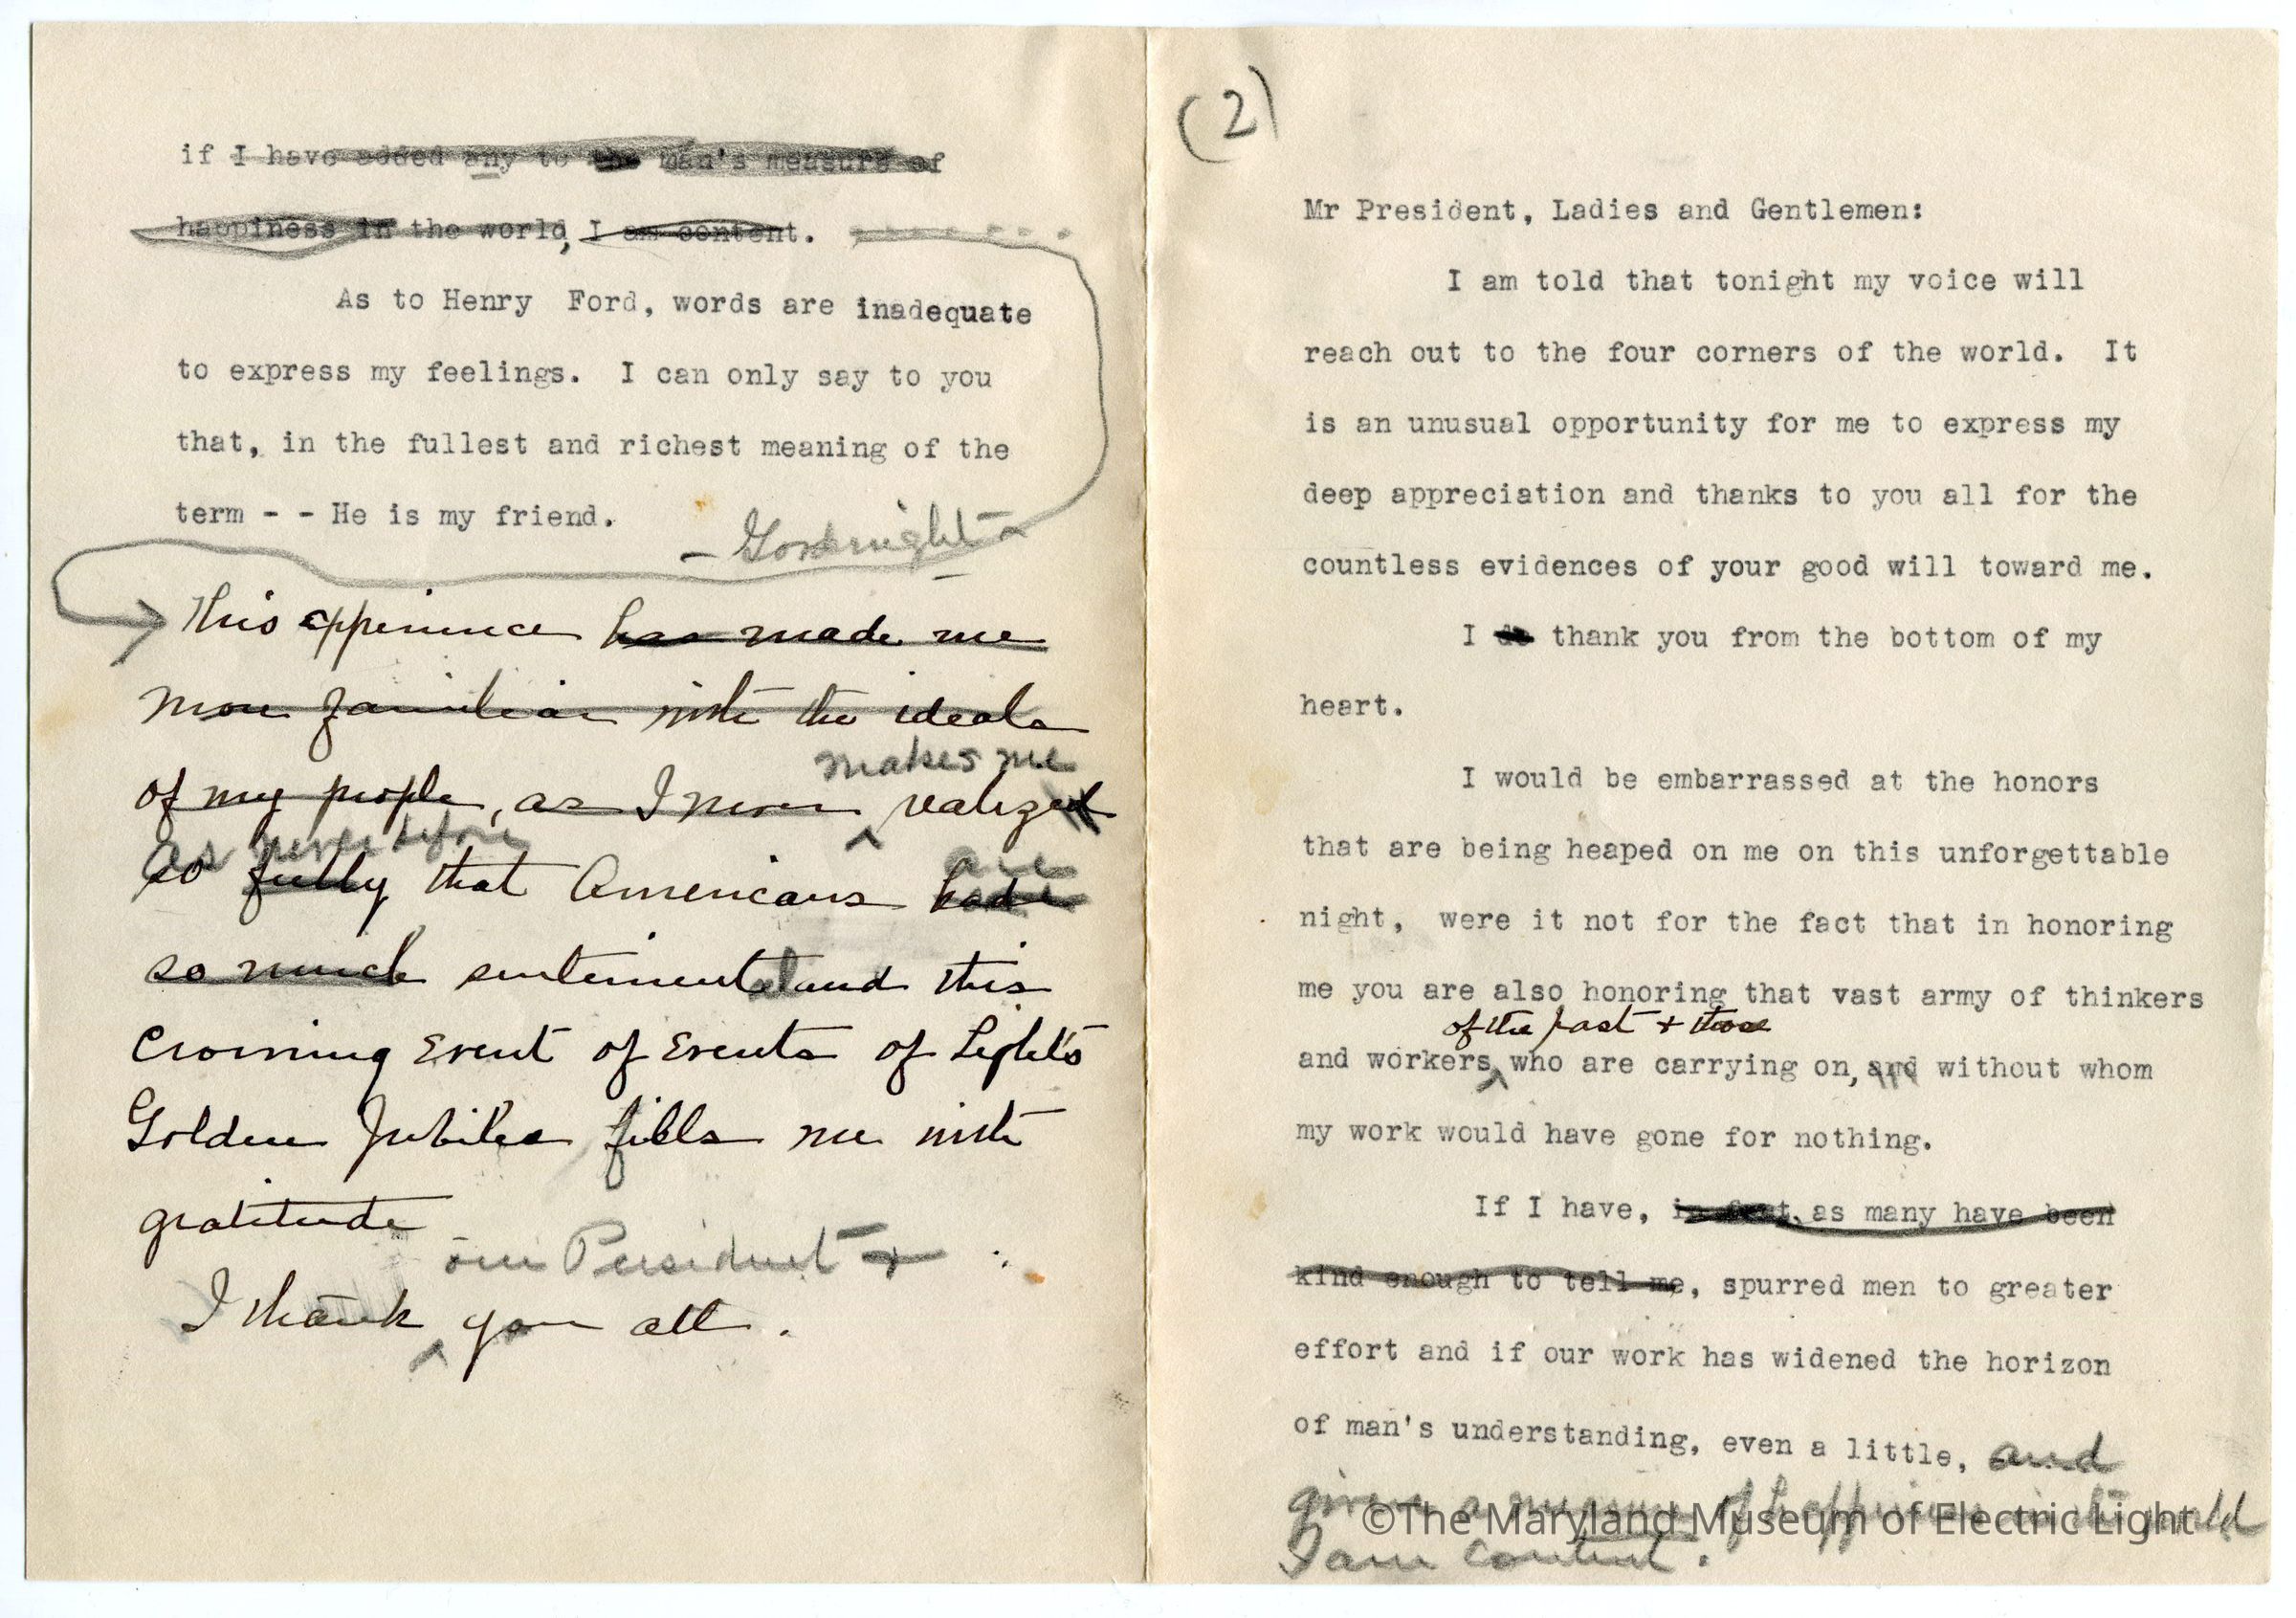 if I have added any to the man's measure of
happiness in the world, I am content.
As to Henry Ford, words are inadequate
to express my feelings. I can only say to you
that, in the fullest and richest meaning of the
term - - He is my friend.
- Goodnight -
This experience has made me
more familiar with the ideals
makes me
of my people, as I never realized
as never before
so fully that Americans had
are
so much sentimental and this
Crowning Event of Events of Light's
Golden Jubilee fills me with
gratitude
our President +
I thank ^ you all.
(2)
Mr President, Ladies and Gentlemen:
I am told that tonight my voice will
reach out to the four corners of the world. It
is an unusual opportunity for me to express my
deep appreciation and thanks to you all for the
countless evidences of your good will toward me.
I do thank you from the bottom of my
heart.
I would be embarrassed at the honors
that are being heaped on me on this unforgettable
night, were it not for the fact that in honoring
me you are also honoring that vast army of thinkers
of the past + those
and workers ^ who are carrying on, and without whom
my work would have gone for nothing.
If I have, in fact, as many have been
kind enough to tell me, spurred men to greater
effort and if our work has widened the horizon
of man's understanding, even a little, and
given a measure of happiness in the world
I am content.
©The Maryland Museum of Electric Light